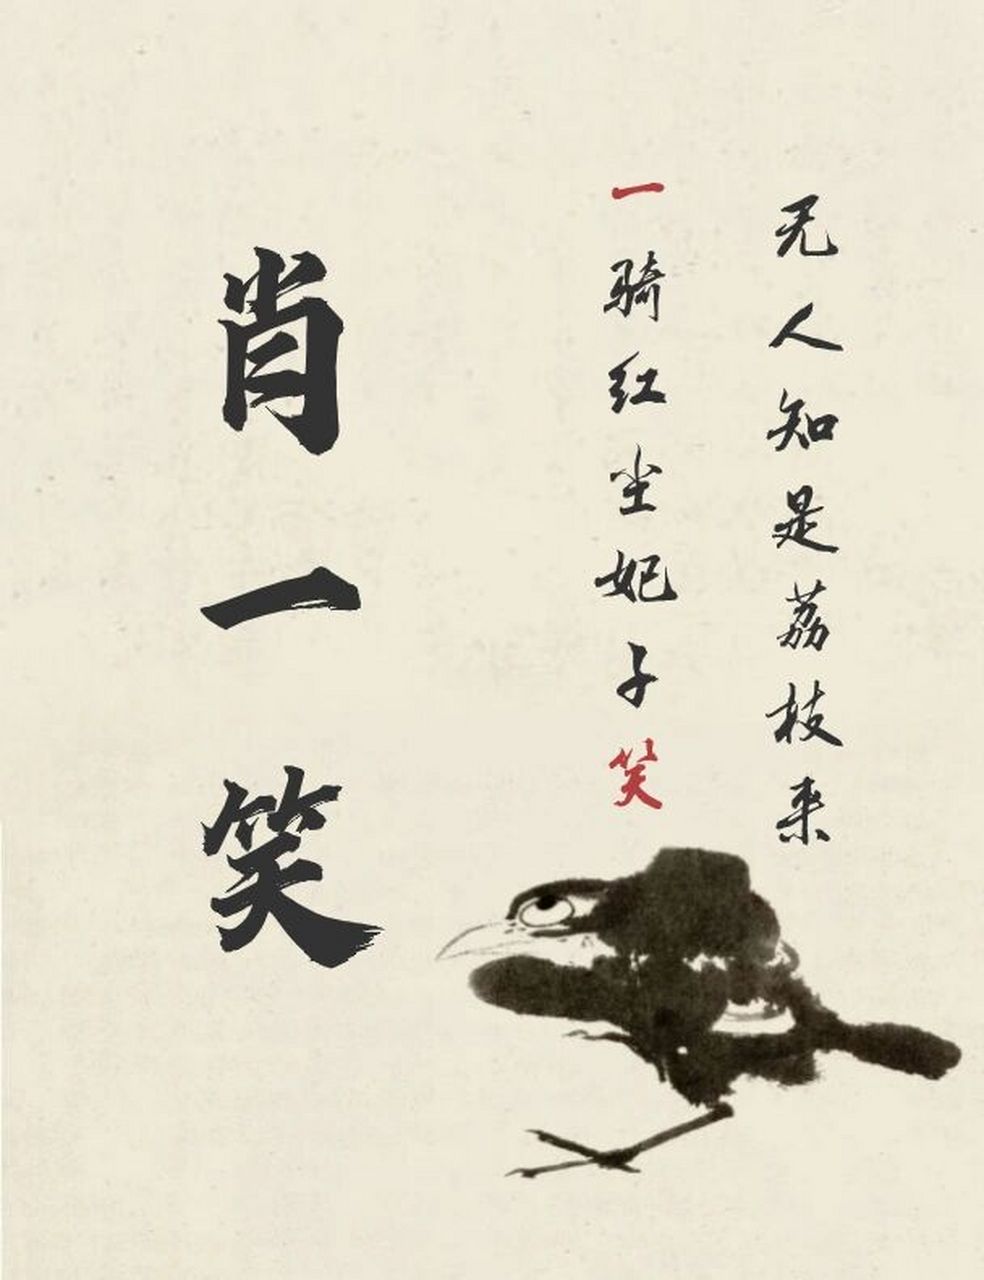 无人知是荔枝来
一骑红尘妃子笑
肖一笑